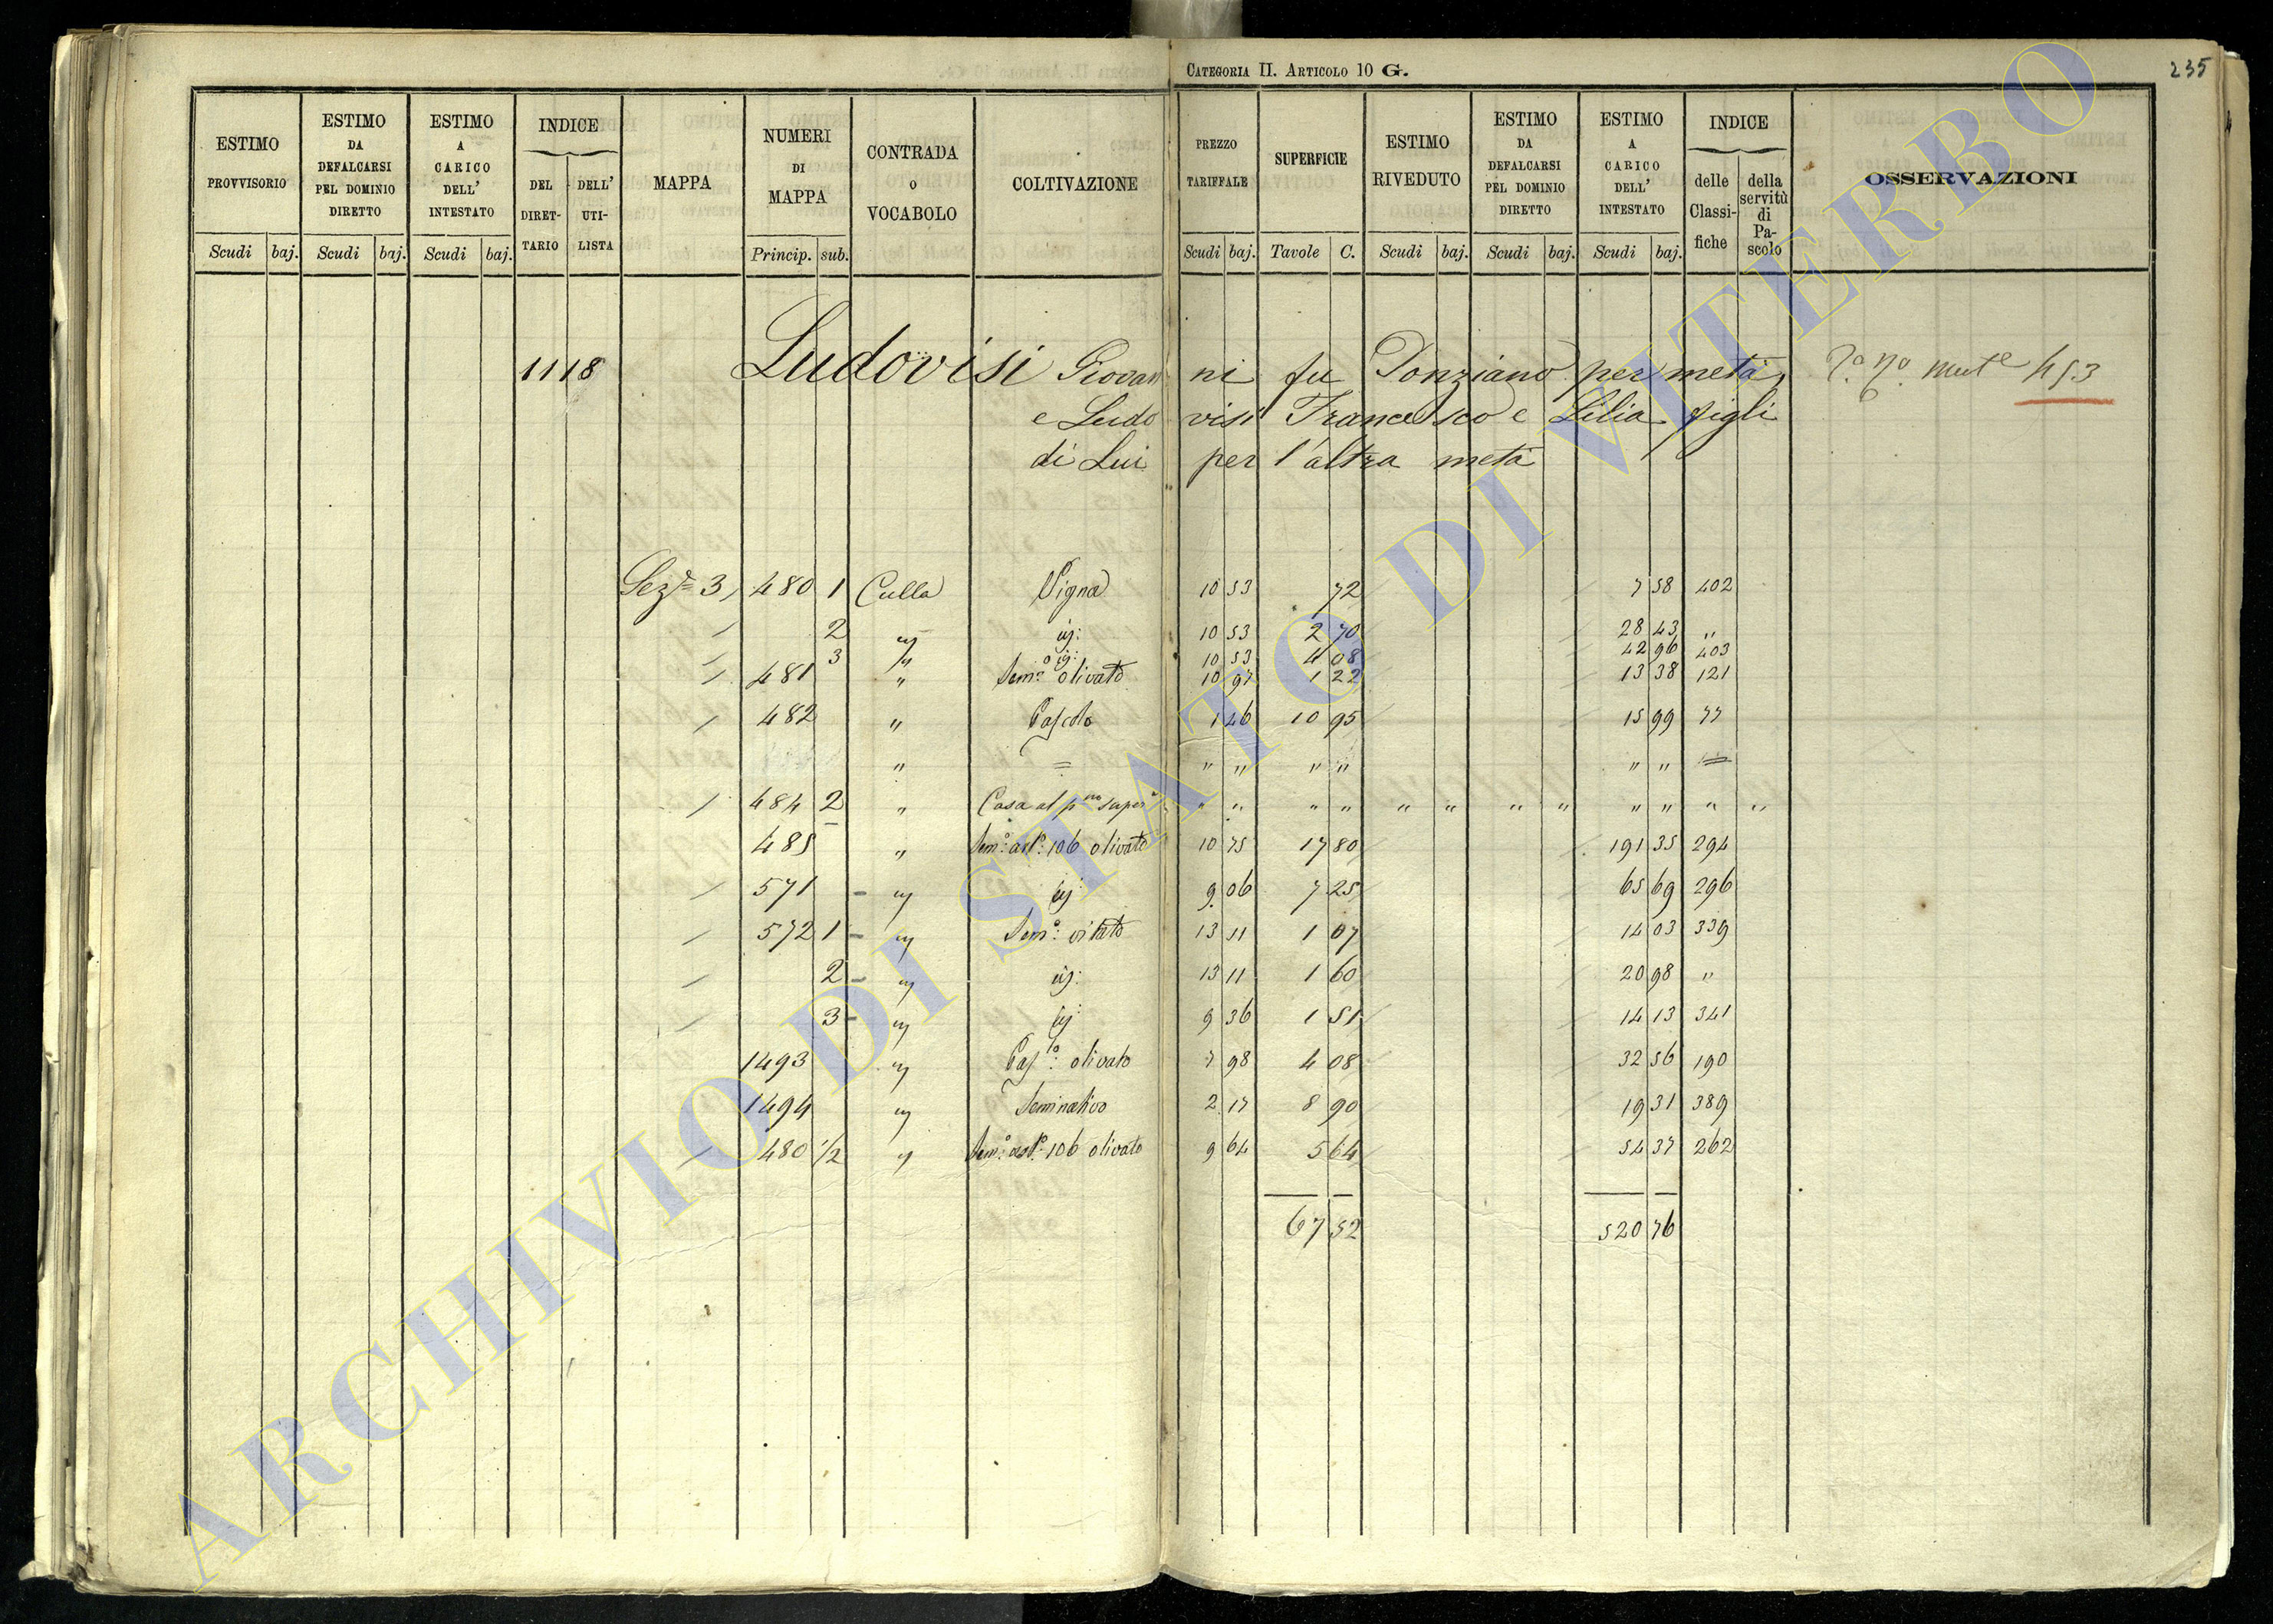 CATEGORIA II. ARTICOLO 10 G.
235
ESTIMO PROVVISORIO
ESTIMO DA DEFALCARSI PEL DOMINIO DIRETTO
ESTIMO A CARICO DELL' INTESTATO
INDICE
DEL DIRET-TARIO
DELL' UTI-LISTA
MAPPA
NUMERI DI MAPPA
CONTRADA O VOCABOLO
COLTIVAZIONE
PREZZO TARIFFALE
SUPERFICIE
ESTIMO RIVEDUTO
ESTIMO DA DEFALCARSI PEL DOMINIO DIRETTO
ESTIMO A CARICO DELL' INTESTATO
INDICE
delle Classi-fiche
della servitù di Pa-scolo
OSSERVAZIONI
Scudi baj. Scudi baj. Scudi baj. Princip. sub. Scudi baj. Tavole C. Scudi baj. Scudi baj. Scudi baj.
1118 Ludovisi Giovanni fu Ponziano per metà 453
e Ludovisi Francesco e Lilia figli
di Lui per l'altra metà
Sez.e 3 480 1 Culla Vigna 10 53 72 7 58 402
2 " id: 10 53 2 70 28 43 "
3 " id: 10 53 4 08 42 96 403
481 " Sem.o olivato 10 97 1 22 13 38 121
482 " Pascolo 1 46 10 95 15 99 77
" = " " " " " " =
484 2 " Casa al p.mo super.e " " " " " " " " " " " "
485 " Sem.o 106 olivato 10 75 17 80 191 35 294
571 - " id: 9 06 7 25 65 69 296
572 1 - " Sem.o vitato 13 11 1 07 14 03 339
2 - " id: 13 11 1 60 20 98 "
3 - " id 9 36 1 51 14 13 341
1493 " Pas.o olivato 7 98 4 08 32 56 190
1494 " Seminativo 2 17 8 90 19 31 389
480 1/2 " Sem.o 106 olivato 9 64 5 64 54 37 262
67 52 520 76
ARCHIVIO DI STATO DI VITERBO